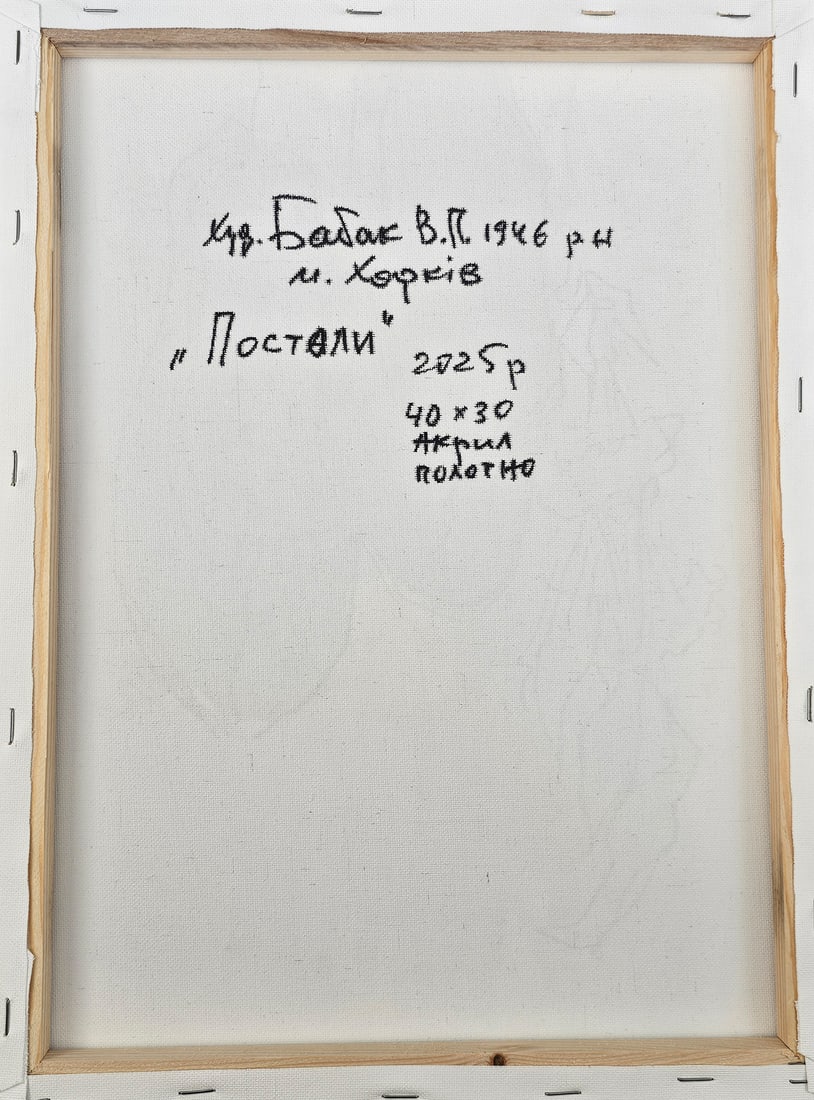 Худ. Бабак В.П. 1946 р н
м. Харків
„Постали"
2025р
40 х 30
Акрил
полотно